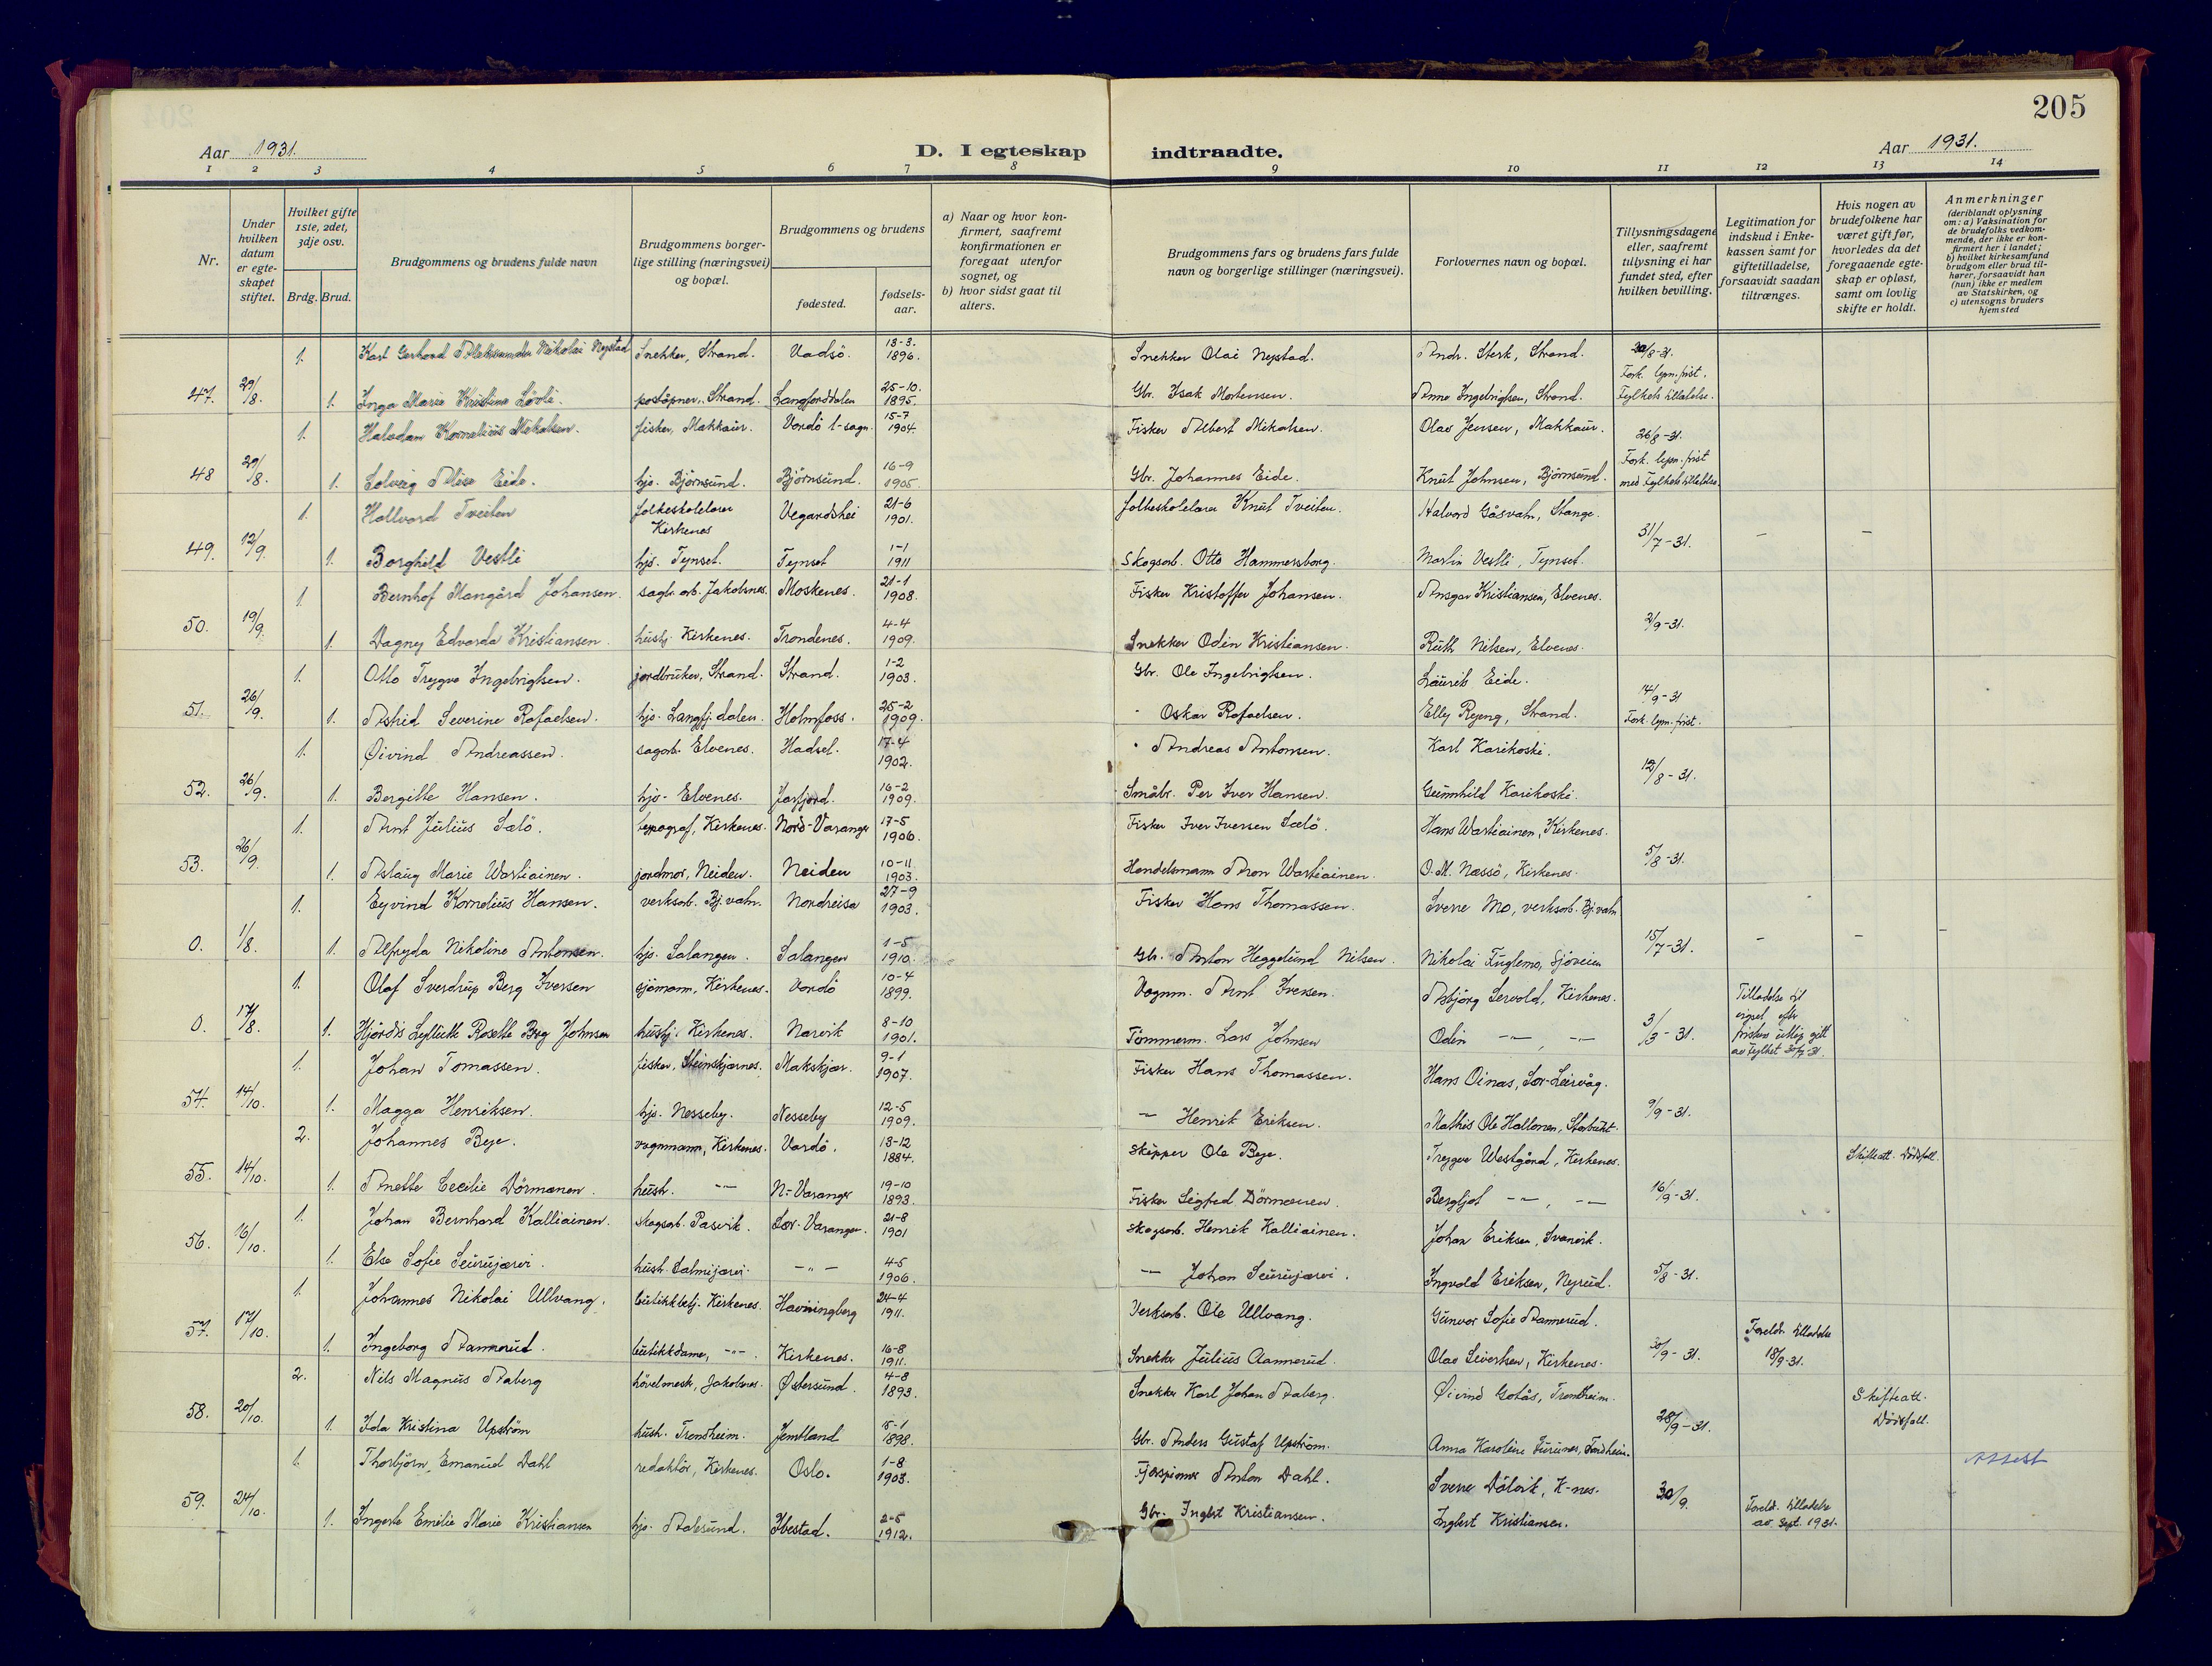 205
Aar 1931.
D. I egteskap indtraadte.
Aar 1931.
1 2 3 4 5 6 7 8 9 10 11 12 13 14
Nr.
Under hvilken datum er egteskapet stiftet.
Hvilket gifte 1ste, 2det, 3dje osv.
Brdg. Brud.
Brudgommens og brudens fulde navn
Brudgommens borgerlige stilling (næringsvei) og bopæl.
Brudgommens og brudens
fødested.
fødselsaar.
a) Naar og hvor konfirmert, saafremt konfirmationen er foregaat utenfor sognet, og
b) hvor sidst gaat til alters.
Brudgommens fars og brudens fars fulde navn og borgerlige stillinger (næringsvei).
Forlovernes navn og bopæl.
Tillysningsdagene eller, saafremt tillysning ei har fundet sted, efter hvilken bevilling.
Legitimation for indskud i Enkekassen samt for giftetilladelse, forsaavidt saadan tiltrænges.
Hvis nogen av brudefolkene har været gift før, hvorledes da det foregaaende egteskap er opløst, samt om lovlig skifte er holdt.
Anmerkninger
(deriblandt oplysning om: a) Vaksination for de brudefolks vedkommende, der ikke er konfirmert her i landet; b) hvilket kirkesamfund brudgom eller brud tilhører, forsaavidt han (hun) ikke er medlem av Statskirken, og c) utensogns bruders hjemsted
1. Karl Gerhard Aleksander Nikolai Nystad Snekker, Strand. Vadsö. 13-3. 1896. Snekker Olai Nystad. Andr. Sterk, Strand. 20/8-31.
Fork. lysn. frist.
47. 29/8. 1. Inga Marie Kristine Løvli. poståpner, Strand. Langfjorddalen 25-10. 1895. Gbr. Isak Mortensen. Anna Ingebrigtsen, Strand. Fylkets tillatelse.
1. Halvdan Kornelius Mikalsen. fisker, Makkaur. Vardö l-sogn. 15-7 1904. Fisker Albert Mikalsen. Olav Jensen, Makkaur. 26/8-31.
Fork. lysn. frist
48 29/8. 1. Solveig Alise Eide. hjv. Björnsund. Björnsund. 16-9 1905. Gbr. Johannes Eide. Knut Johnsen, Björnsund. med Fylkets tillatelse.
1. Hallvard Tveiten folkeskolelærer Kirkenes Vegardshei 21-6 1901. folkeskolelærer Knut Tveiten. Halvard Gåsvatn, Stange.
49. 12/9. 1. Borghild Vestli hjv. Tynset. Tynset 1-1 1911 Skogsarb. Otto Hammersborg. Martin Vestli, Tynset. 31/7-31. - -
1. Bernhof Mangård Johansen. sagbr. arb. Jakobsnes. Moskenes. 21-1 1908. Fisker Kristoffer Johansen. Ansgar Kristiansen, Elvenes.
50. 19/9. 1. Dagny Edvarda Kristiansen. hushj. Kirkenes. Trondenes. 4-4 1909. Snekker Odin Kristiansen. Ruth Nilsen, Elvenes. 2/9-31.
1. Otto Trygve Ingebrigtsen. jordbruker, Strand. Strand. 1-2 1903. Gbr. Ole Ingebrigtsen. Laurits Eide.
51. 26/9. 1. Astrid Severine Rafaelsen. hjv. Langfj.dalen. Holmfoss. 25-2 1909. " Oskar Rafaelsen. Elly Ryeng, Strand. 14/9-31 Fork. lysn. frist.
1. Øivind Andreassen. sagarb. Elvenes. Hadsel. 17-4 1902. " Andreas Antonsen. Karl Karikoski.
52. 26/9. 1. Bergitte Hansen. hjv. Elvenes. Jarfjord. 16-2 1909. Småbr. Per Iver Hansen. Gunnhild Karikoski. 12/8-31.
1. Arnt Julius Salö. typograf, Kirkenes. Nord-Varanger 17-5 1906. Fisker Iver Iversen Salö. Hans Wartiainen, Kirkenes.
53. 26/9. 1. Aslaug Marie Wartiainen. jordmor, Neiden. Neiden 10-11 1903. Handelsmann Aron Wartiainen. O. M. Næssö, Kirkenes. 5/8-31.
1. Eyvind Kornelius Hansen. verksarb. Bj.vatn. Nordreisa 27-9 1903. Fisker Hans Thomassen. Sverre Mo, verksarb. Bj.vatn
0. 1/8. 1. Alfryda Nikoline Antonsen. hjv. Salangen. Salangen 1-5 1910. Gbr. Anton Heggelund Nilsen. Nikolai Fuglemo, Sjöveien 15/7-31. - - -
1. Olaf Sverdrup Berg Iversen sjömann, Kirkenes. Vardö 10-4 1899. Vognm. Arnt Iversen. Asbjörg Servold, Kirkenes. Tilladelse til vigsel efter
0. 17/8. 1. Hjördis Rosette Berg Johnsen hushj. Kirkenes. Narvik 8-10 1901. Tömmerm. Lars Johnsen Odin -"-, -"- 3/3-31. fristens utløp gitt av Fylket
1. Johan Tomassen. fisker, Steinskjærnes. Makskjær. 9-1 1907. Fisker Hans Thomassen. Hans Oinas, Sør-Leirvåg.
54. 14/10. 1. Magga Henriksen. hjv. Nesseby. Nesseby 12-5 1909. -"- Henrik Eriksen. Mathis Ole Hallonen, Storbukt. 9/9-31.
2. Johannes Beye. vognmann, Kirkenes. Vardö. 13-12 1884. Skipper Ole Beye. Trygve Westgård, Kirkenes. Skifteatt. Dödsfall.
55. 14/10. 1. Anette Cecilie Dörmænen. hush. -"- N.-Varanger 19-10 1893. Fisker Sigfred Dörmænen. Bergljot -"-, -"- 16/9-31.
1. Johan Bernhard Kalliainen. skogsarb. Pasvik. Sør-Varanger. 21-8 1901 Skogsarb. Henrik Kalliainen. Johan Eriksen, Svanvik.
56. 16/10. 1. Else Sofie Seurujærvi. hush. Salmijærvi. -"- 4-5 1906. -"- Johan Seurujærvi. Ingvald Eriksen, Nyrud. 5/8-31.
1. Johannes Nikolai Ullvang. butikkbetj. Kirkenes. Havningberg 24-4 1911. Verksarb. Ole Ullvang. Gunvor Sofie Aannerud.
57. 17/10. 1. Ingeborg Aannerud. butikkdame, -"-. Kirkenes. 16-8 1911. Snekker Julius Aannerud. Olav Sivertsen, Kirkenes. 30/9-31. Foreldr. tilladelse 18/9-31.
2. Nils Magnus Aaberg hövelmesk, Jakobsnes. Østersund. 4-8 1893. Snekker Karl Johan Aaberg. Øivind Gotås, Trondheim. Skifteatt. Dödsfall.
58. 20/10. 1. Ida Kristina Upström hush. Trondheim. Jemtland 15-1 1898. Gbr. Anders Gustaf Upström. Anna Karoline Furunes, Trondheim. 28/9-31.
1. Thorbjörn Emanuel Dahl redaktör, Kirkenes. Oslo. 1-8 1903. Anton Dahl. Sverre Dölvik, K-nes. Attest
59. 24/10. 1. Ingerte Emilie Marie Kristiansen hjv. Aalesund. Ibestad. 2-5 1912. Gbr. Ingbert Kristiansen. Ingbert Kristiansen. 30/9. Foreldr. tilladelse av Sept. 1931.